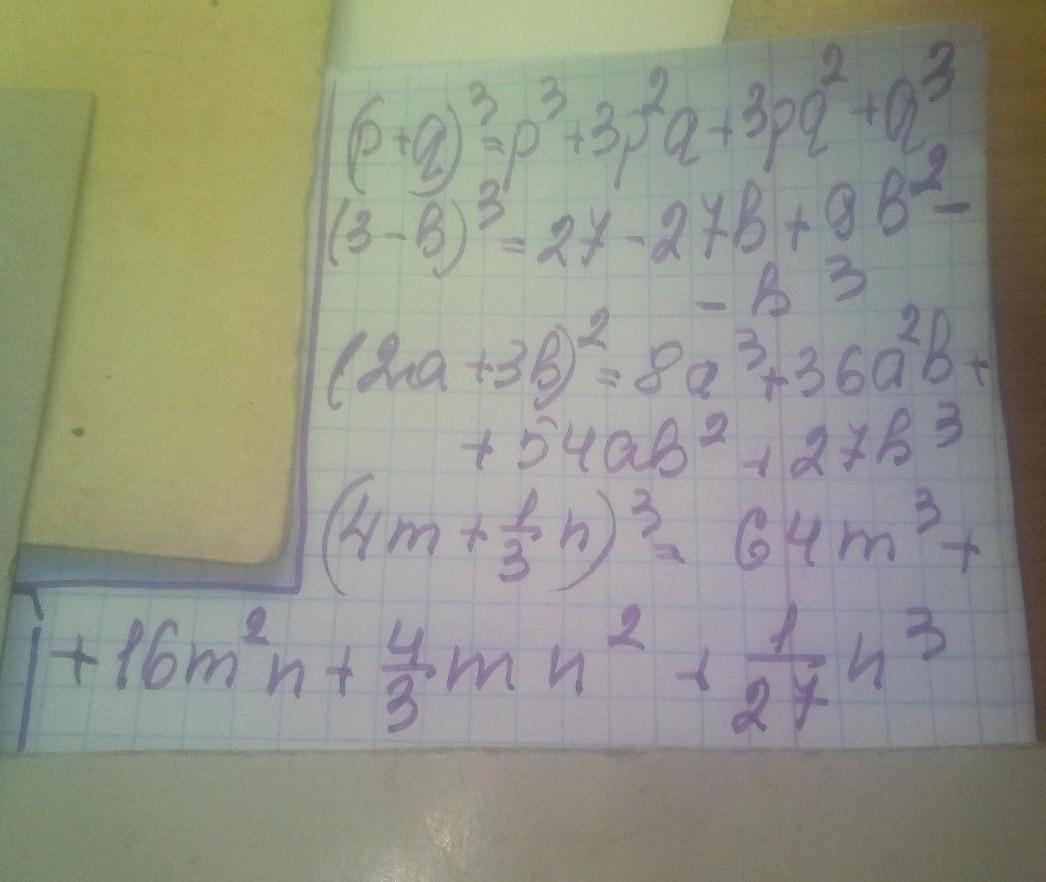 (p+q)³=p³+3p²q+3pq²+q³
(3-b)³=27-27b+9b²-
-b³
(2a+3b)²=8a³+36a²b+
+54ab²+27b³
(4m+1/3n)³=64m³+
+16m²n+4/3mn²+1/27n³